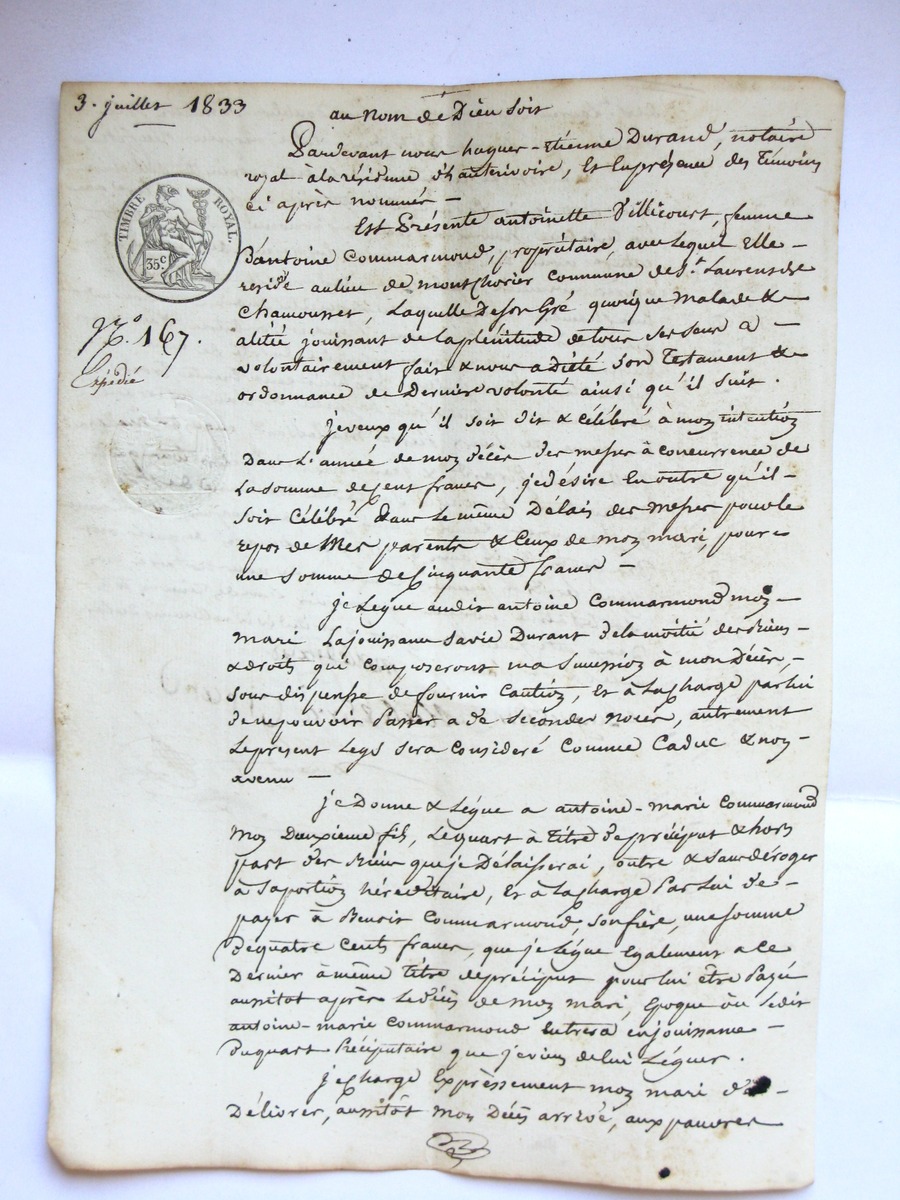 3. juillet 1833
au nom de Dieu soit
Pardevant nous hugues-Etienne Durand, notaire
royal a la résidence d'hauterivoire, Et En présence des témoins
ci après nommés —
TIMBRE ROYAL.
35.c
Est Présente antoinette Villicourt, femme
D'antoine Commarmond, propriétaire, avec Lequel Elle —
reside au lieu de montchorier commune de St Laurent de
Chamousset, Laquelle De Son Gré quoique Malade &
alitée jouissant de la plénitude de tous Ses Sens a —
volontairement fait & nous a dicté Son Testament &
ordonnance de Dernière volonté ainsi qu'il Suit.
No. 167.
Expédié
je veux qu'il soit dit & célébré à mon intention
Dans L'année de mon décès des messes à concurrence de
La Somme de cent francs, je désire En outre qu'il —
Soit Célébré dans Le même Délais des Messes pour le
repos de Mes parents & Ceux de mon mari, pour
une Somme de Cinquante francs —
je Lègue audit antoine Commarmond mon —
Mari La jouissance Sa vie Durant de la moitié des Biens —
& droits qui composeront ma Succession à mon Décès, —
Sous dispense de fournir Caution, Et à La charge par lui
de ne pouvoir Passer a de Secondes Noces, autrement
Le présent Legs Sera Consideré Comme Caduc & non —
avenu —
je Donne & Lègue a antoine-marie Commarmond
Mon Deuxième fils, Le quart à titre de préciput & hors
part des Biens que je Délaisserai, outre & Sans déroger
à Sa portion héréditaire, Et à La charge Par Lui de —
payer à Benoit Commarmond, Son frère, une Somme
De quatre Cents francs, que je Lègue Egalement a Ce
Dernier à même titre de préciput pour lui être Payée
aussitot après Le décès de mon mari, Epoque où Ledit
antoine-marie Commarmond Entrera en jouissance —
Du quart Préciputaire que je viens de lui Léguer.
je charge Expressement mon mari de —
Délivrer, aussitôt mon Décès arrivé, aux pauvres